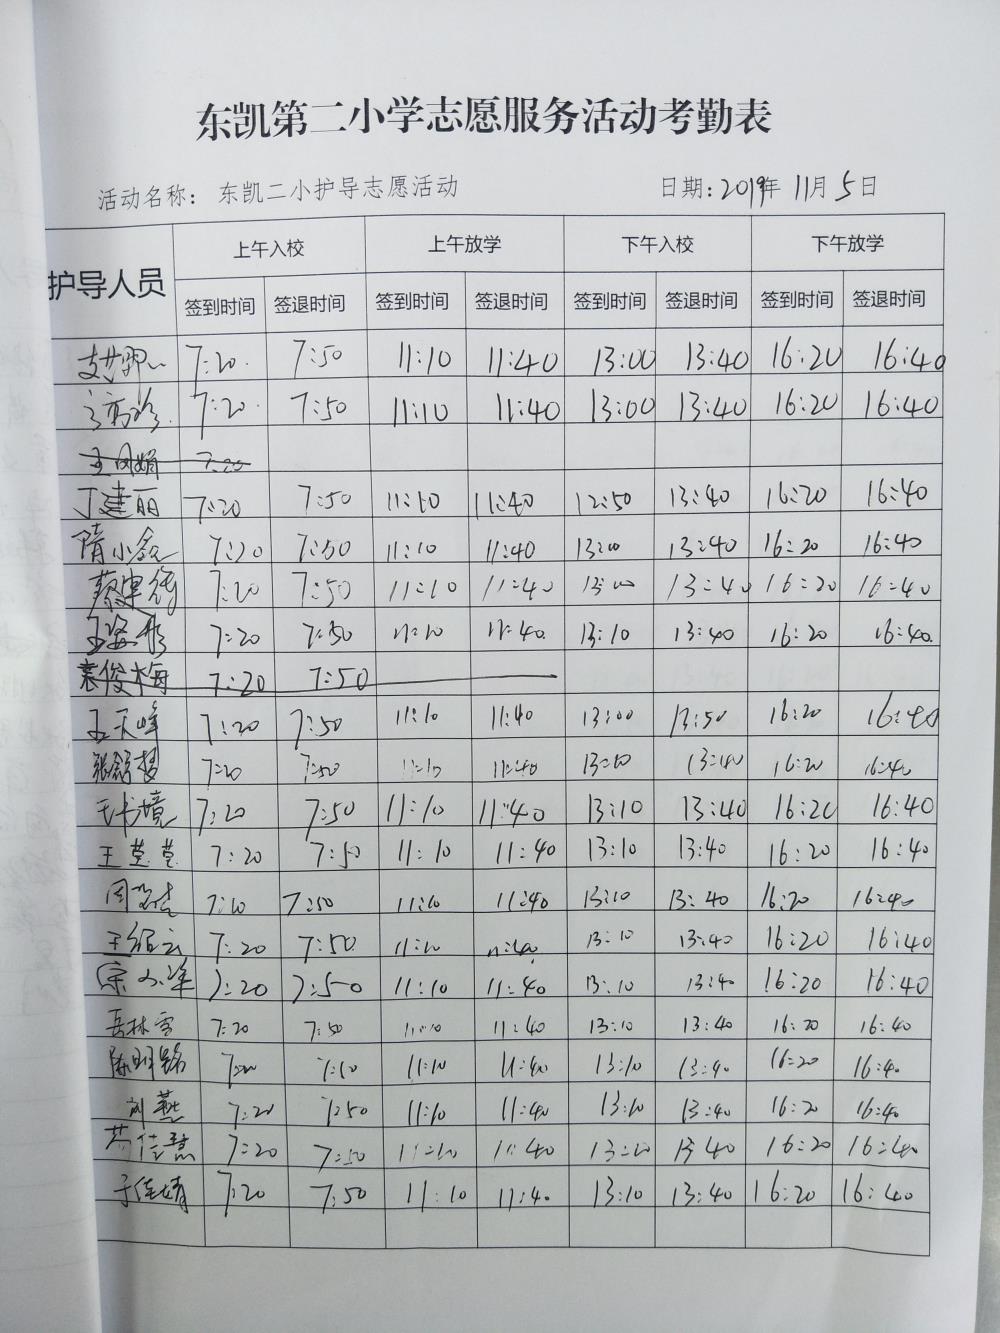 东凯第二小学志愿服务活动考勤表
活动名称： 东凯二小护导志愿活动 日期: 2019年 11月 5日
护导人员 上午入校 上午放学 下午入校 下午放学
签到时间 签退时间 签到时间 签退时间 签到时间 签退时间 签到时间 签退时间
7:20 7:50 11:10 11:40 13:00 13:40 16:20 16:40
7:20 7:50 11:10 11:40 13:00 13:40 16:20 16:40
王凤娟 7:20
丁建丽 7:20 7:50 11:10 11:40 12:50 13:40 16:20 16:40
隋小 7:20 7:50 11:10 11:40 13:00 13:40 16:20 16:40
7:20 7:50 11:10 11:40 13:00 13:40 16:20 16:40
王 7:20 7:50 11:10 11:40 13:10 13:40 16:20 16:40
袁俊梅 7:20 7:50
王天峰 7:20 7:50 11:10 11:40 13:00 13:50 16:20 16:40
张 7:20 7:50 11:10 11:40 13:10 13:40 16:20 16:40
王书境 7:20 7:50 11:10 11:40 13:10 13:40 16:20 16:40
王莹莹 7:20 7:50 11:10 11:40 13:10 13:40 16:20 16:40
周 7:10 7:50 11:10 11:40 13:10 13:40 16:20 16:40
王 7:20 7:50 11:10 11:40 13:10 13:40 16:20 16:40
宋 7:20 7:50 11:10 11:40 13:10 13:40 16:20 16:40
岳林雪 7:20 7:50 11:10 11:40 13:10 13:40 16:20 16:40
陈明 7:20 7:50 11:10 11:40 13:10 13:40 16:20 16:40
刘燕 7:20 7:50 11:10 11:40 13:10 13:40 16:20 16:40
佳慧 7:20 7:50 11:10 11:40 13:10 13:40 16:20 16:40
于佳婧 7:20 7:50 11:10 11:40 13:10 13:40 16:20 16:40